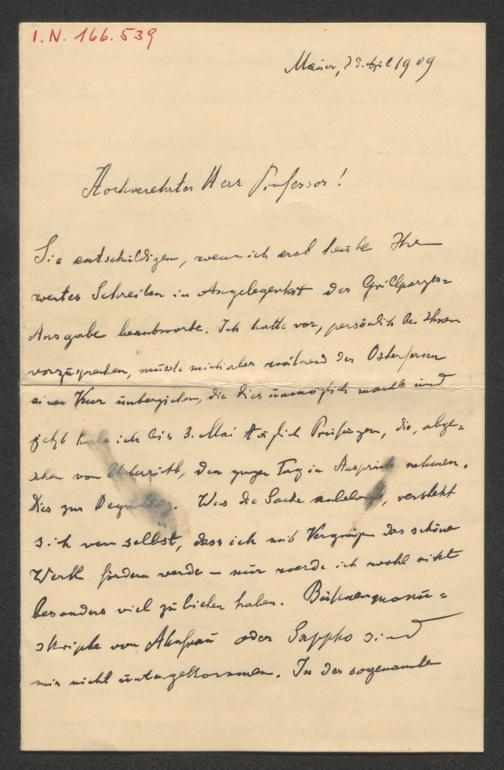 I.N. 166.539
Mauer, 29. April 1909
Hochverehrter Herr Professor!
Sie entschuldigen, wenn ich erst heute Ihr
wertes Schreiben in Angelegenheit der Grillparzer-
Ausgabe beantworte. Ich hatte vor, persönlich bei Ihnen
vorzusprechen, musste mich aber während der Osterferien
einer Kur unterziehen, die dies unmöglich machte und
jetzt habe ich bis 3. Mai täglich Prüfungen, die, abge-
sehen vom Unterricht, den ganzen Tag in Anspruch nehmen.
Dies zur . Was die Sache anbelangt, versteht
sich von selbst, dass ich mit Vergnügen das schöne
Werk fördern werde – nur werde ich wohl nicht
besonders viel zu bieten haben. Bühnenmanu-
skripte von Ahnfrau oder Sappho sind
mir nicht untergekommen. In der sogenannten